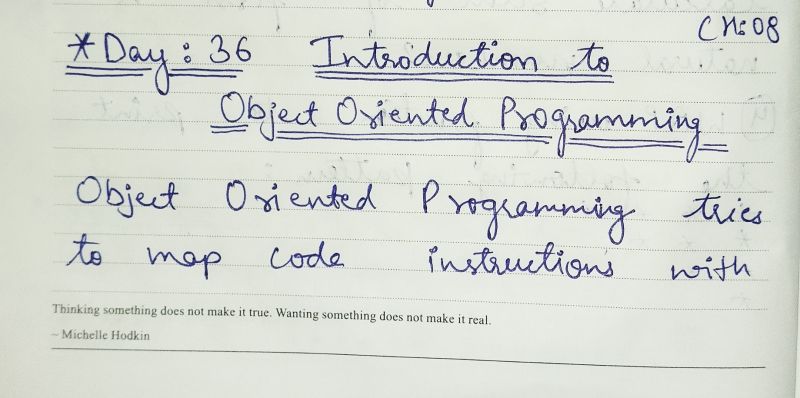 CH:08
*Day: 36 Introduction to
Object Oriented Programming
Object Oriented Programming tries
to map code instructions with
Thinking something does not make it true. Wanting something does not make it real.
~ Michelle Hodkin